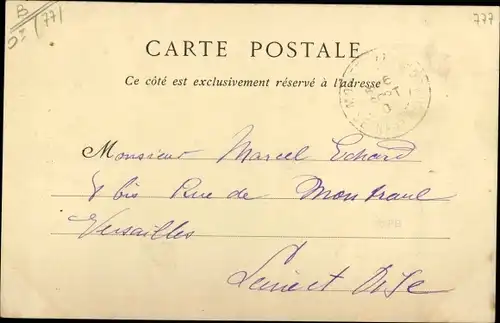 B
D² (77)
777
CARTE POSTALE
Ce côté est exclusivement réservé à l'adresse
6
Monsieur Marcel Echard
bis Rue de
Versailles
Seine et Oise